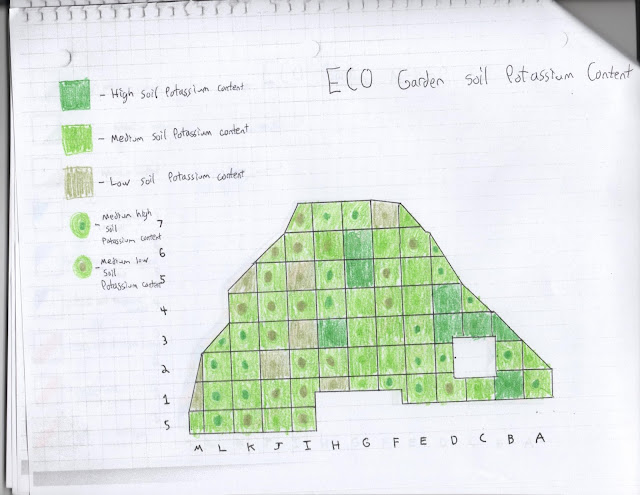 ECO Garden Soil Potassium Content
- High Soil Potassium content
- Medium Soil Potassium content
- Low Soil Potassium content
- Medium high
Soil
Potassium content
- Medium low
Soil
Potassium content
7
6
5
4
3
2
1
5
M L K J I H G F E D C B A